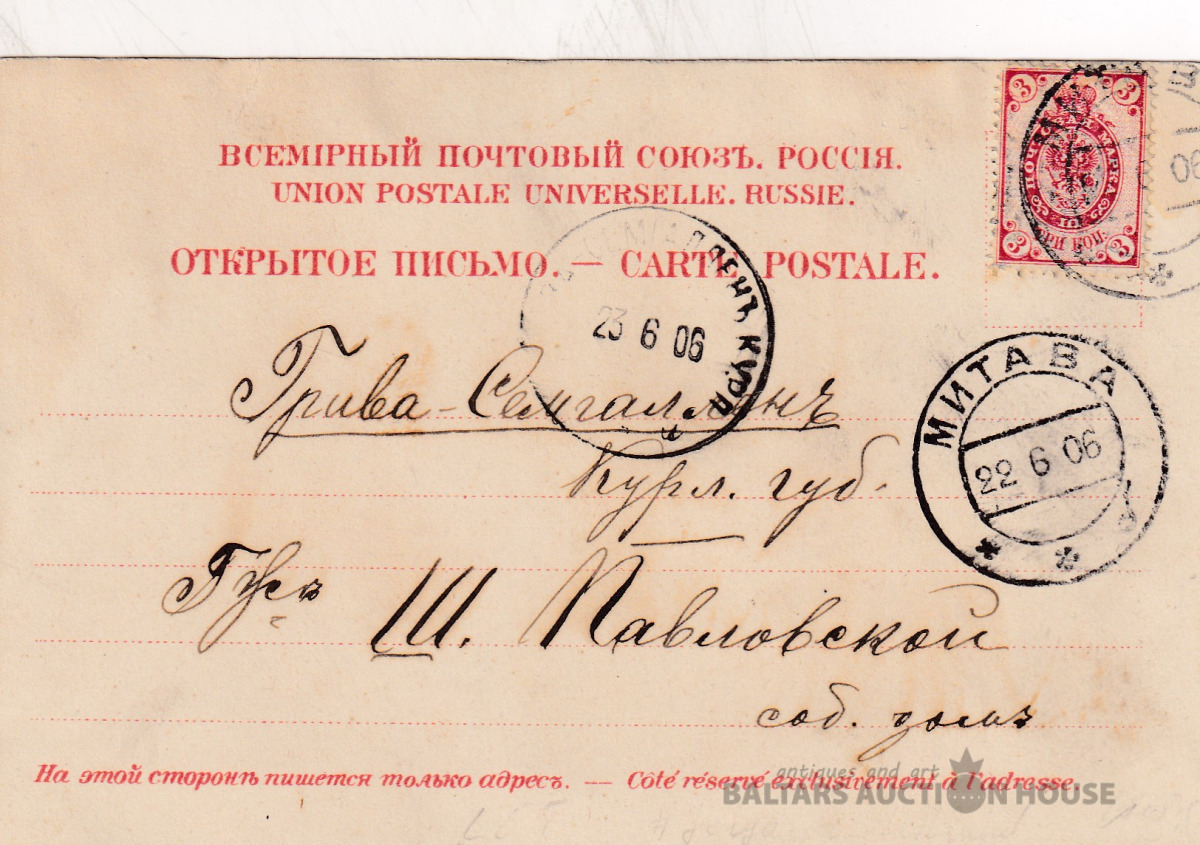 ВСЕМІРНЫЙ ПОЧТОВЫЙ СОЮЗЪ. РОССІЯ.
UNION POSTALE UNIVERSELLE. RUSSIE.
ОТКРЫТОЕ ПИСЬМО. — CARTE POSTALE.
3 3
ПОЧТОВАЯ МАРКА
ТРИ КОП.
3 3
23 6 06
МИТАВА
22 6 06
Грива-Семгалленъ
Курл. губ.
Ш. Павловской
соб. домъ
На этой сторонѣ пишется только адресъ. — Côté réservé exclusivement à l'adresse.
antiques and art
BALIARS AUCTION HOUSE